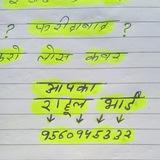 ? फरीदाबाद ?
लोरा कबर
आपका
राहुल भाई
9560945332